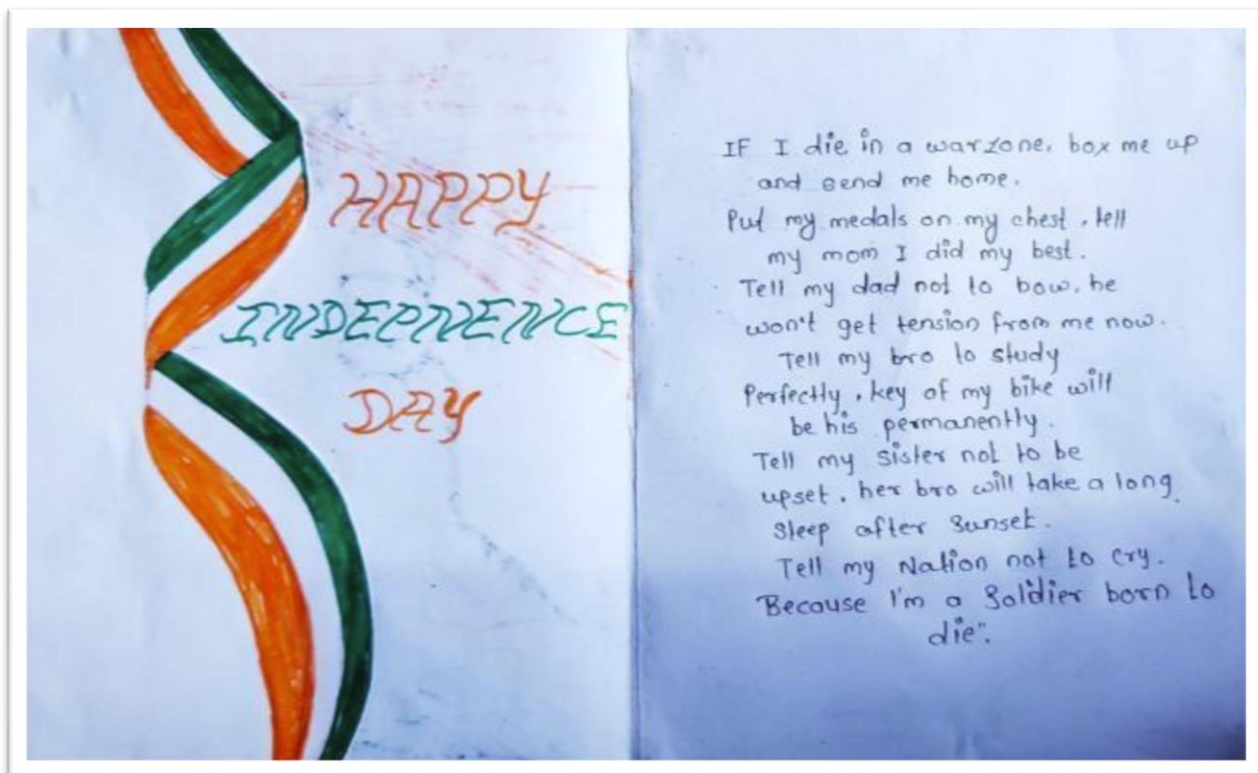 HAPPY
INDEPNENCE
DAY
IF I die in a warzone. box me up
and send me home.
Put my medals on my chest. tell
my mom I did my best.
Tell my dad not to bow. he
won't get tension from me now.
Tell my bro to study
Perfectly. key of my bike will
be his permanently.
Tell my sister not to be
upset. her bro will take a long
Sleep after Sunset.
Tell my Nation not to cry.
Because I'm a Soldier born to
die".